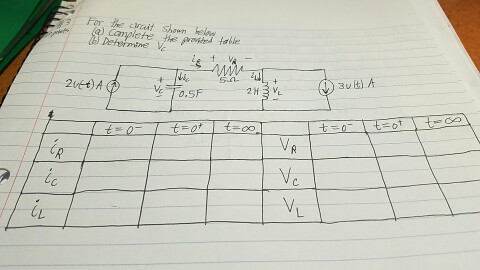 For the circuit shown below
(a) Complete the provided table
(b) Determine Vc
iR + VR -
5Ω
2u(t) A + Vc - ic 0.5F 2H iL + VL - 3u(t) A
t=0⁻ t=0⁺ t=∞ t=0⁻ t=0⁺ t=∞
iR VR
ic Vc
iL VL